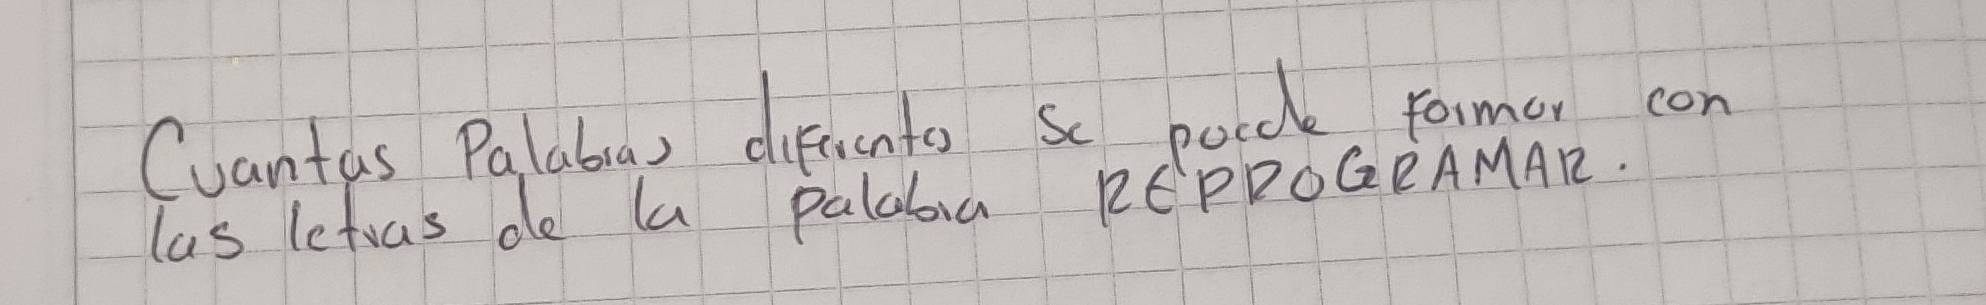 Cuantas Palabras diferentes se puede formar con
las letras de la palabra REPROGRAMAR.